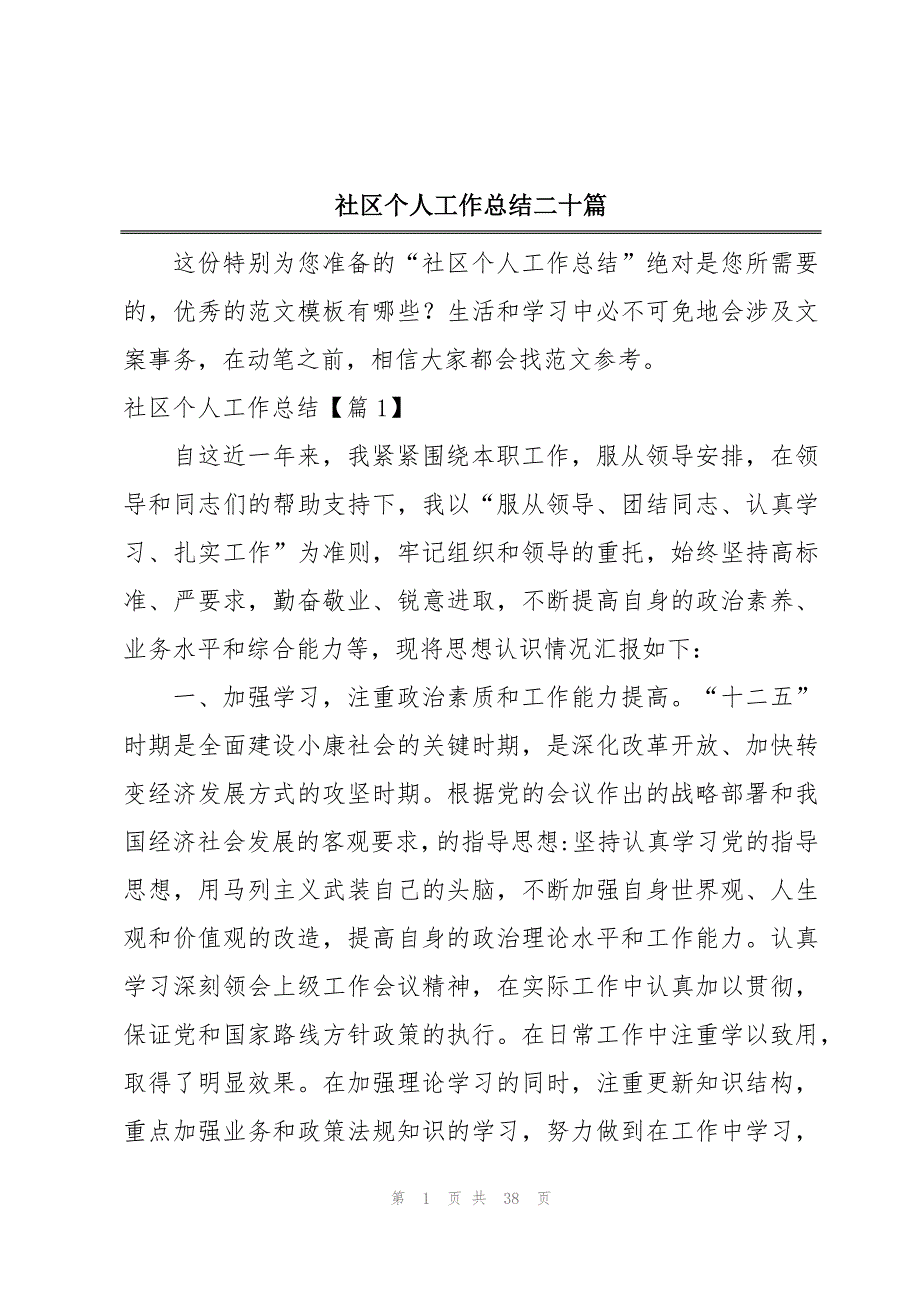 社区个人工作总结二十篇
这份特别为您准备的“社区个人工作总结”绝对是您所需要
的，优秀的范文模板有哪些？生活和学习中必不可免地会涉及文
案事务，在动笔之前，相信大家都会找范文参考。
社区个人工作总结【篇1】
自这近一年来，我紧紧围绕本职工作，服从领导安排，在领
导和同志们的帮助支持下，我以“服从领导、团结同志、认真学
习、扎实工作”为准则，牢记组织和领导的重托，始终坚持高标
准、严要求，勤奋敬业、锐意进取，不断提高自身的政治素养、
业务水平和综合能力等，现将思想认识情况汇报如下：
一、加强学习，注重政治素质和工作能力提高。“十二五”
时期是全面建设小康社会的关键时期，是深化改革开放、加快转
变经济发展方式的攻坚时期。根据党的会议作出的战略部署和我
国经济社会发展的客观要求，的指导思想：坚持认真学习党的指导
思想，用马列主义武装自己的头脑，不断加强自身世界观、人生
观和价值观的改造，提高自身的政治理论水平和工作能力。认真
学习深刻领会上级工作会议精神，在实际工作中认真加以贯彻，
保证党和国家路线方针政策的执行。在日常工作中注重学以致用，
取得了明显效果。在加强理论学习的同时，注重更新知识结构，
重点加强业务和政策法规知识的学习，努力做到在工作中学习，
第 1 页 共 38 页